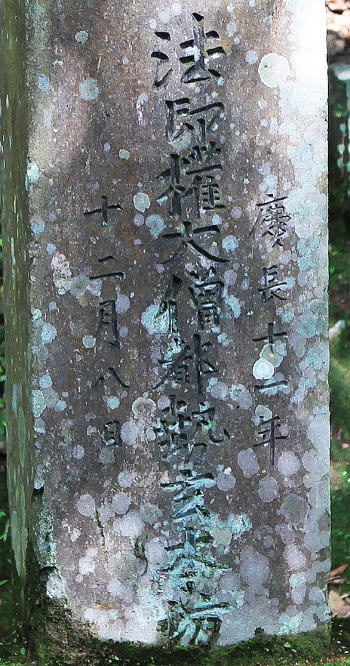 慶長十一年
法印權大僧都玄
十二月八日